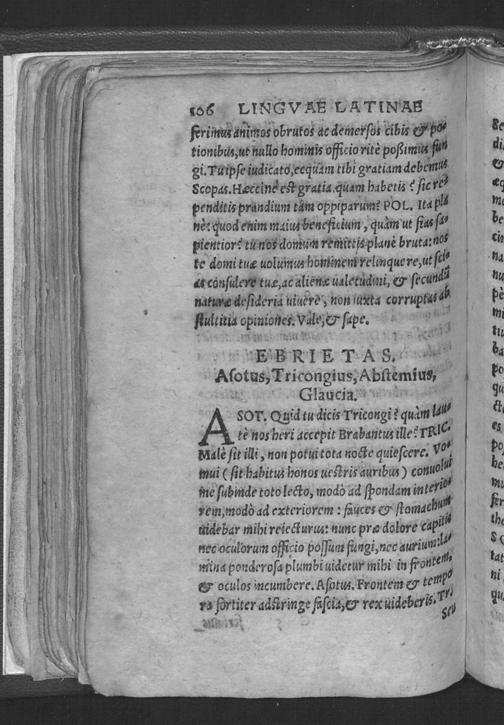 106 LINGVAE LATINAE
ferimus animos obrutos ac demersos cibis & po-
tionibus, ut nullo hominis officio ritè poßimus fun
gi. Tu ipse iudicato, ecquàm tibi gratiam debemus
Scopas. Hæccine est gratia quam habetis? sic re-
penditis prandium tàm opiparum? POL. Ita pla
nè: quod enim maius beneficium, quàm ut fias sa-
pientior? tu nos domum remittis planè bruta: nos
te domi tuæ uolumus hominem relinquere, ut scis-
as consulere tuæ, ac alienæ ualetudini, & secundũ
naturæ desideria uiuere, non iuxta corruptas ab
stultitia opiniones. Vale, & sape.
EBRIETAS.
Asotus, Tricongius, Abstemius,
Glaucia.
ASOT. Quid tu dicis Tricongi? quàm lau-
tè nos heri accepit Brabantus ille? TRIC.
Malè sit illi, non potui tota nocte quiescere. Vo-
mui (sit habitus honos uestris auribus) conuolui
me subinde toto lecto, modò ad spondam interio-
rem, modò ad exteriorem: fauces & stomachum
uidebar mihi reiecturus: nunc præ dolore capitis
nec oculorum officio possum fungi, nec aurium: la-
mina ponderosa plumbi uidetur mihi in frontem,
& oculos incumbere. Asotus. Frontem & tempo
ra fortiter adstringe fascia, & rex uideberis. Tri